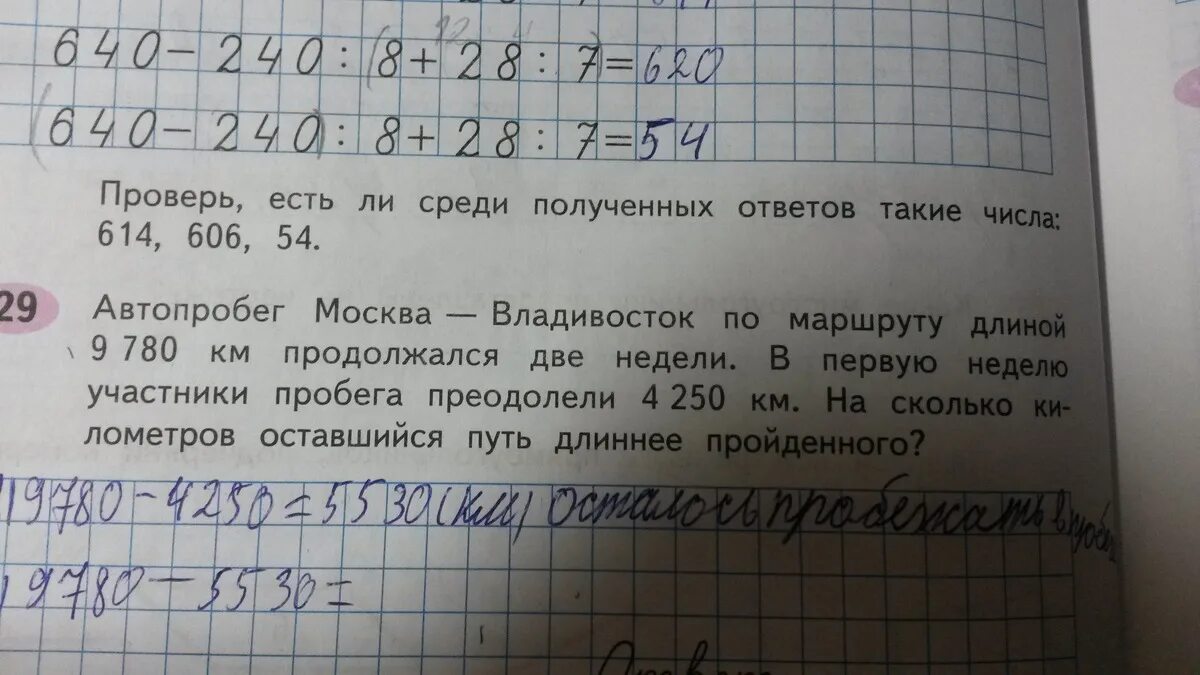 640 − 240 : (8 + 28 : 7) = 620
(640 − 240) : 8 + 28 : 7 = 54
Проверь, есть ли среди полученных ответов такие числа:
614, 606, 54.
29 Автопробег Москва — Владивосток по маршруту длиной
9 780 км продолжался две недели. В первую неделю
участники пробега преодолели 4 250 км. На сколько ки-
лометров оставшийся путь длиннее пройденного?
) 9780 − 4250 = 5530 (км) осталось пробежать в
) 9780 − 5530 =